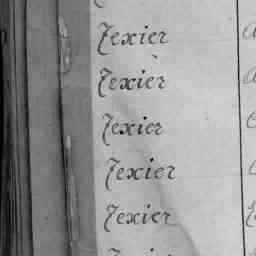 Texier
Texier
Texier
Texier
Texier